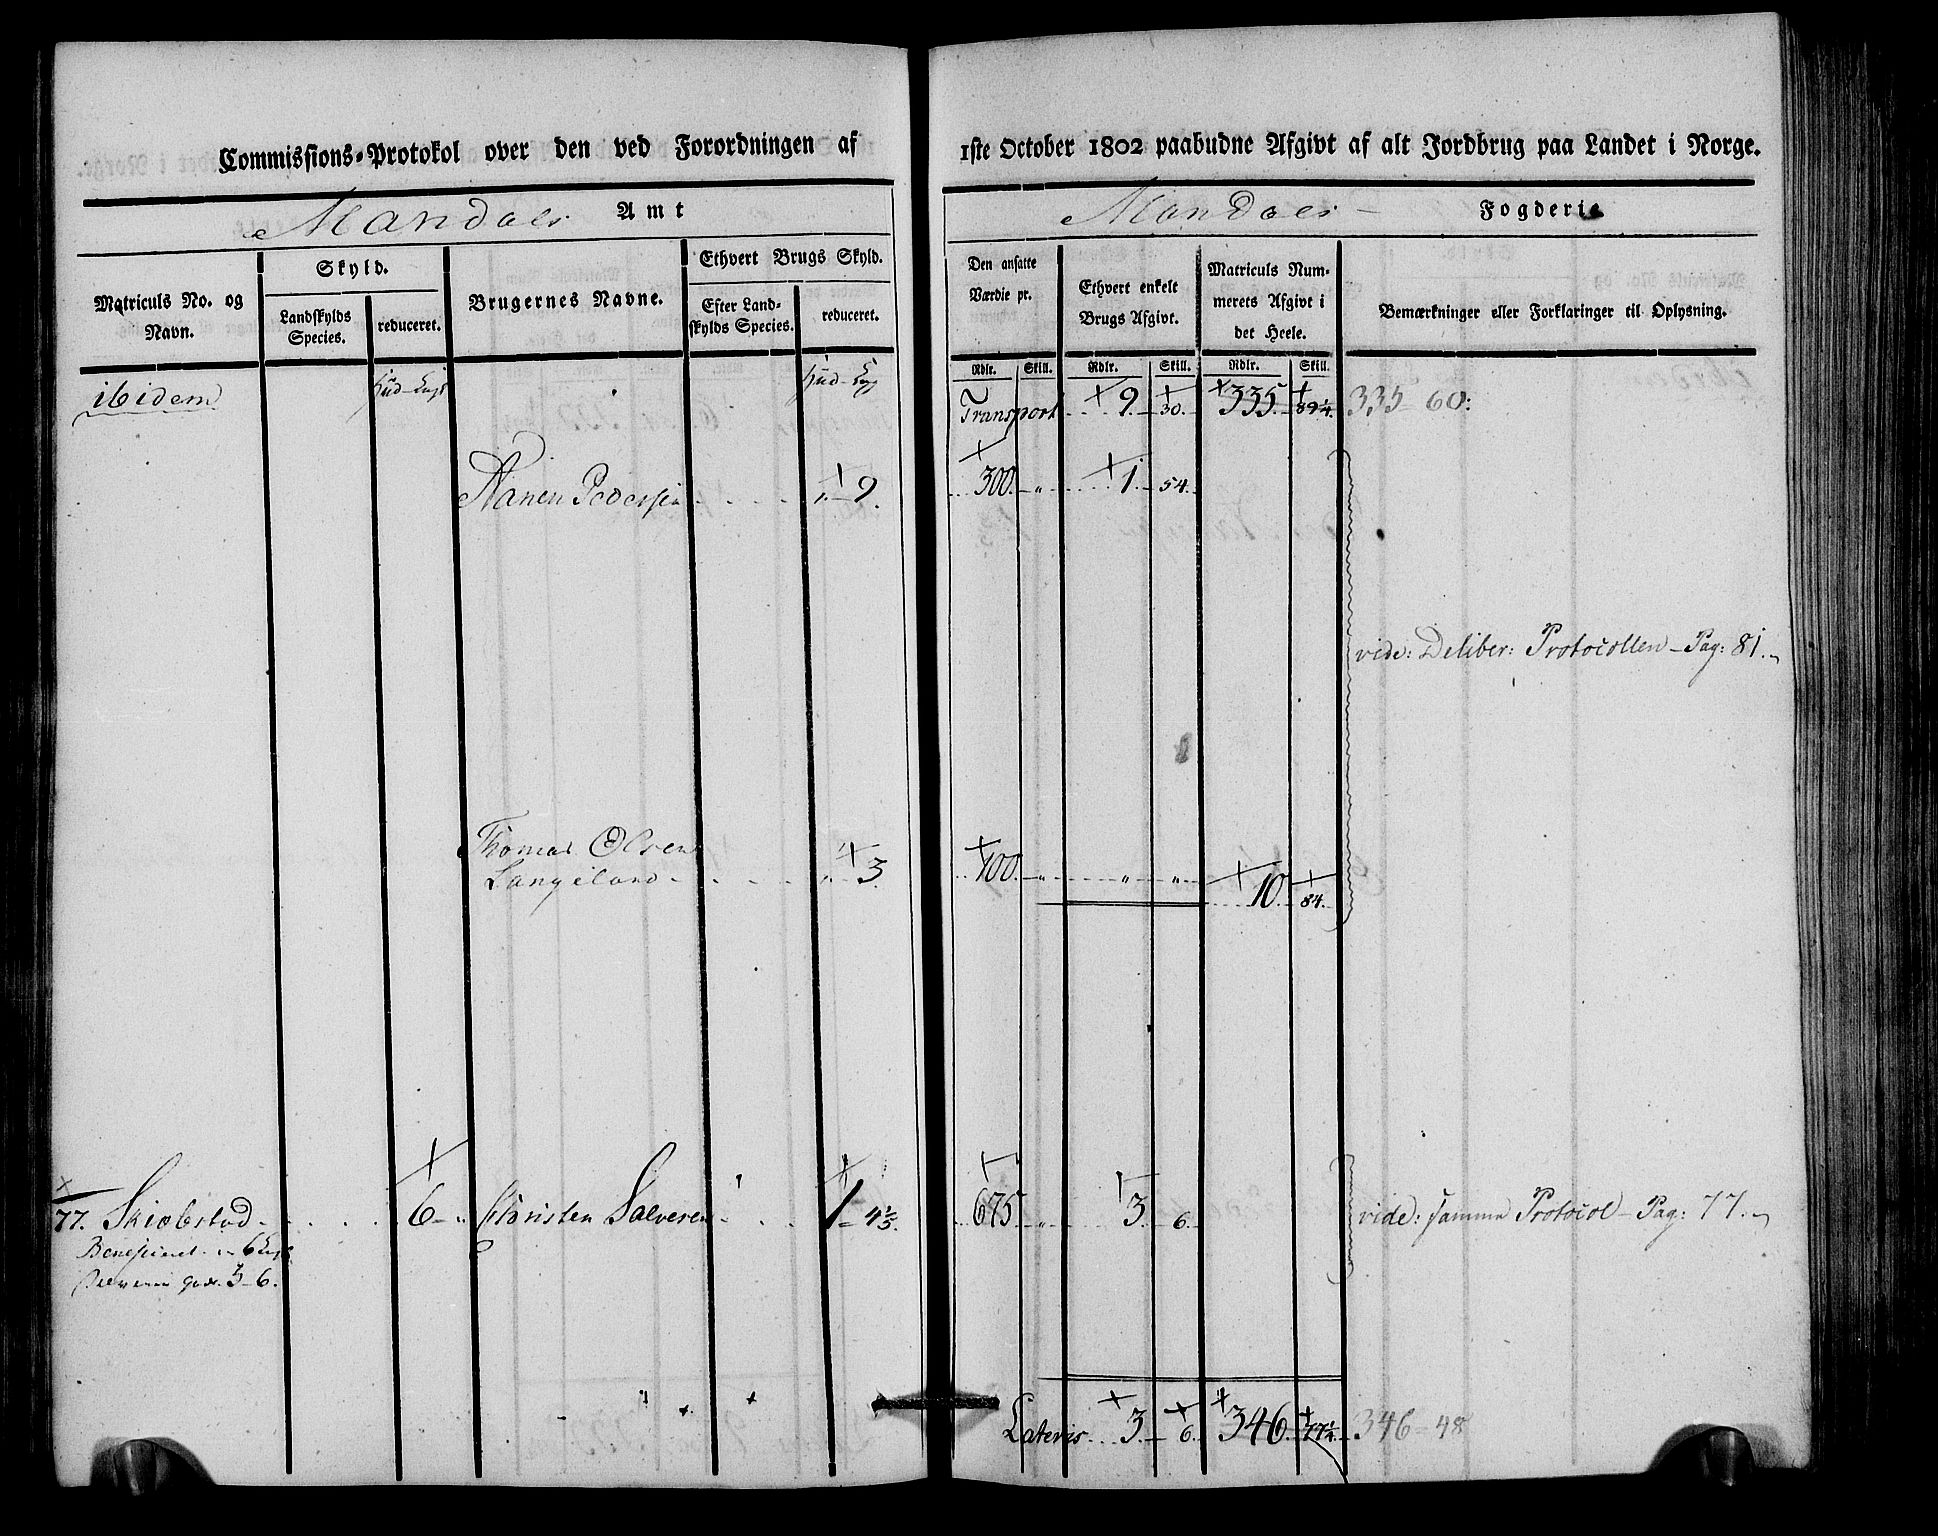 Commissions-Protokol over den ved Forordningen af 1ste October 1802 paabudne Afgivt af alt Jordbrug paa Landet i Norge.
Mandals Amt
Mandals Fogderie
Matriculs No. og Navn.
Skyld.
Landskylds Species.
reduceret.
Brugernes Navne.
Ethvert Brugs Skyld.
Efter Landskylds Species.
reduceret.
Den ansatte Værdie pr.
Ethvert enkelt Brugs Afgivt.
Matriculs Nummerets Afgivt i det Heele.
Bemærkninger eller Forklaringer til Oplysning.
Rdlr. Skill. Rdlr. Skill. Rdlr. Skill.
ibidem Hud
Hud
Transport 9. 30. 335. 89¼. 335 60:
Aanen Pedersen 9. 300. 1. 54.
vide: Deliber: Protocollen - Pag: 81.
Thomas Olsen
Langeland 3. 100. 10. 84.
77. Skiøbstad 6 Christen Salvesen 1 - 4½. 675 3. 6. vide: samme Protocol - Pag: 77.
Lateris 3. 6. 346. 77¼. 346 - 48